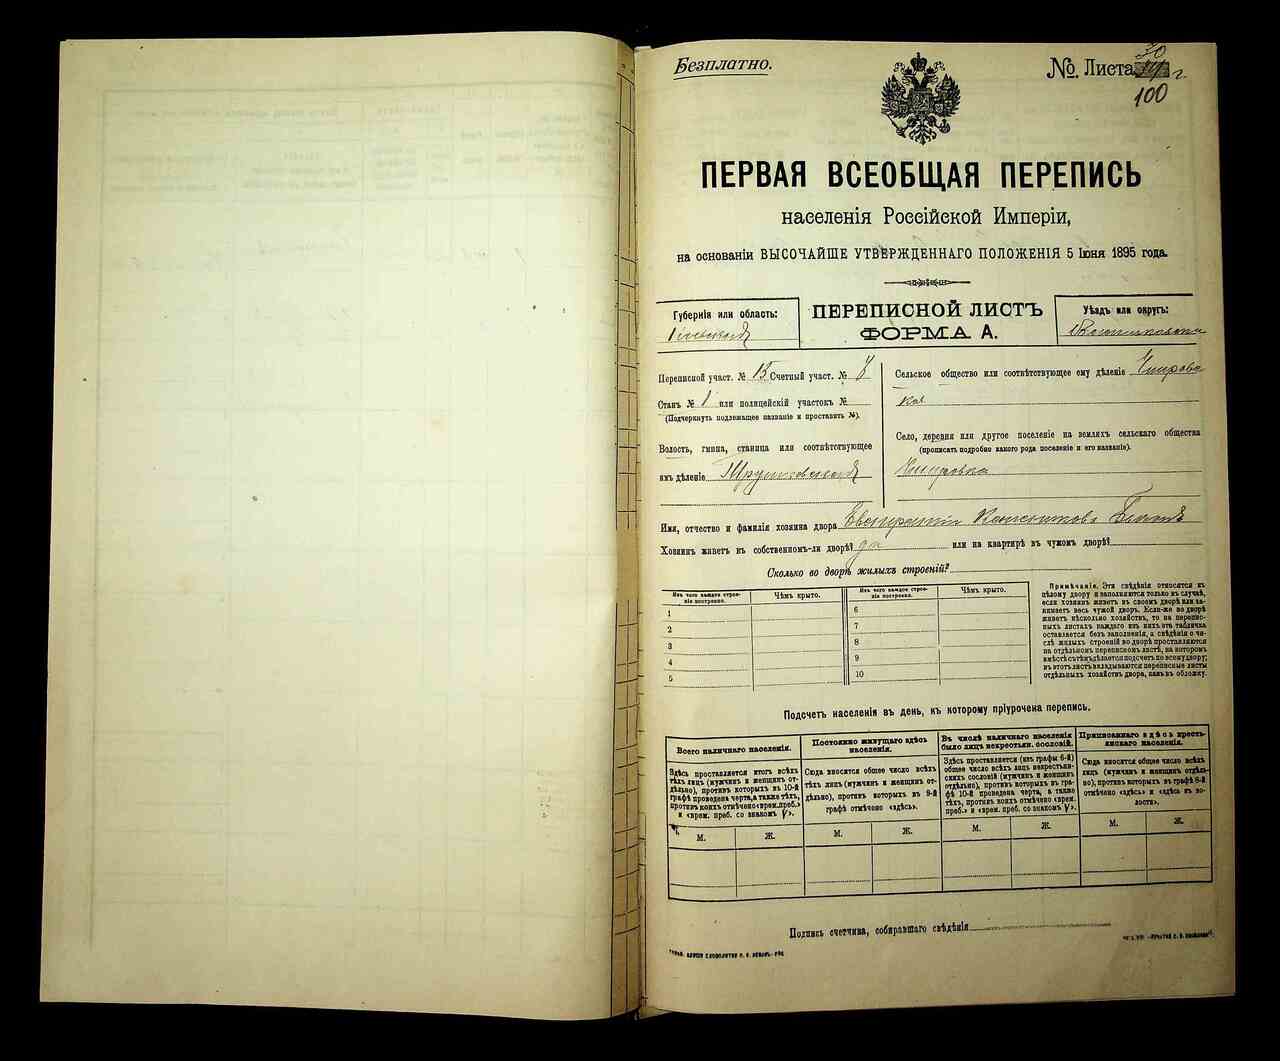 Безплатно.
№ Листа 30
100
ПЕРВАЯ ВСЕОБЩАЯ ПЕРЕПИСЬ
населенія Россійской Имперіи,
на основаніи ВЫСОЧАЙШЕ УТВЕРЖДЕННАГО ПОЛОЖЕНІЯ 5 Іюня 1895 года.
Губернія или область:
ПЕРЕПИСНОЙ ЛИСТЪ
ФОРМА А.
Уѣздъ или округъ:
Переписной участ. № 15 Счетный участ. №
Станъ № 1 или полицейскій участокъ №
(Подчеркнуть подлежащее названіе и проставить №).
Волость, гмина, станица или соотвѣтствующее
имъ дѣленіе
Сельское общество или соотвѣтствующее ему дѣленіе
Село, деревня или другое поселеніе на земляхъ сельскаго общества
(прописать подробно какого рода поселеніе и его названіе).
Имя, отчество и фамилія хозяина двора
Хозяинъ живетъ въ собственномъ-ли дворѣ? да или на квартирѣ въ чужомъ дворѣ?
Сколько во дворѣ жилыхъ строеній?
Изъ чего каждое строе-
ніе построено.
Чѣмъ крыто.
Изъ чего каждое строе-
ніе построено.
Чѣмъ крыто.
1
2
3
4
5
6
7
8
9
10
Примѣчаніе. Эти свѣдѣнія относятся къ
цѣлому двору и заполняются только въ случаѣ,
если хозяинъ живетъ въ своемъ дворѣ или за-
нимаетъ весь чужой дворъ. Если-же во дворѣ
живетъ нѣсколько хозяйствъ, то на перепис-
ныхъ листахъ каждаго изъ нихъ эта табличка
оставляется безъ заполненія, а свѣдѣнія о чи-
слѣ жилыхъ строеній во дворѣ проставляются
на отдѣльномъ переписномъ листѣ, на которомъ
вмѣстѣ съ тѣмъ дѣлается подсчетъ по всему двору;
въ этотъ листъ вкладываются переписные листы
отдѣльныхъ хозяйствъ двора, какъ въ обложку.
Подсчетъ населенія въ день, къ которому пріурочена перепись.
Всего наличнаго населенія.
Здѣсь проставляется итогъ всѣхъ
тѣхъ лицъ (мужчинъ и женщинъ от-
дѣльно), противъ которыхъ въ 10-й
графѣ проведена черта, а также тѣхъ,
противъ коихъ отмѣчено «врем. преб.»
и «врем. преб. со знакомъ V».
Постоянно живущаго здѣсь
населенія.
Сюда вносится общее число всѣхъ
тѣхъ лицъ (мужчинъ и женщинъ от-
дѣльно), противъ которыхъ въ 9-й
графѣ отмѣчено «здѣсь».
Въ числѣ наличнаго населенія
было лицъ некрестьян. сословій.
Здѣсь проставляется (изъ графы 6-й)
общее число всѣхъ лицъ некрестьян-
скихъ сословій (мужчинъ и женщинъ
отдѣльно), противъ которыхъ въ гра-
фѣ 10-й проведена черта, а также
тѣхъ, противъ коихъ отмѣчено «врем.
преб.» и «врем. преб. со знакомъ V».
Приписаннаго здѣсь кресть-
янскаго населенія.
Сюда вносится общее число всѣхъ
лицъ (мужчинъ и женщинъ отдѣль-
но), противъ которыхъ въ графѣ 8-й
отмѣчено «здѣсь» и «здѣсь въ во-
лости».
М. Ж. М. Ж. М. Ж. М. Ж.
Подпись счетчика, собиравшаго свѣдѣнія